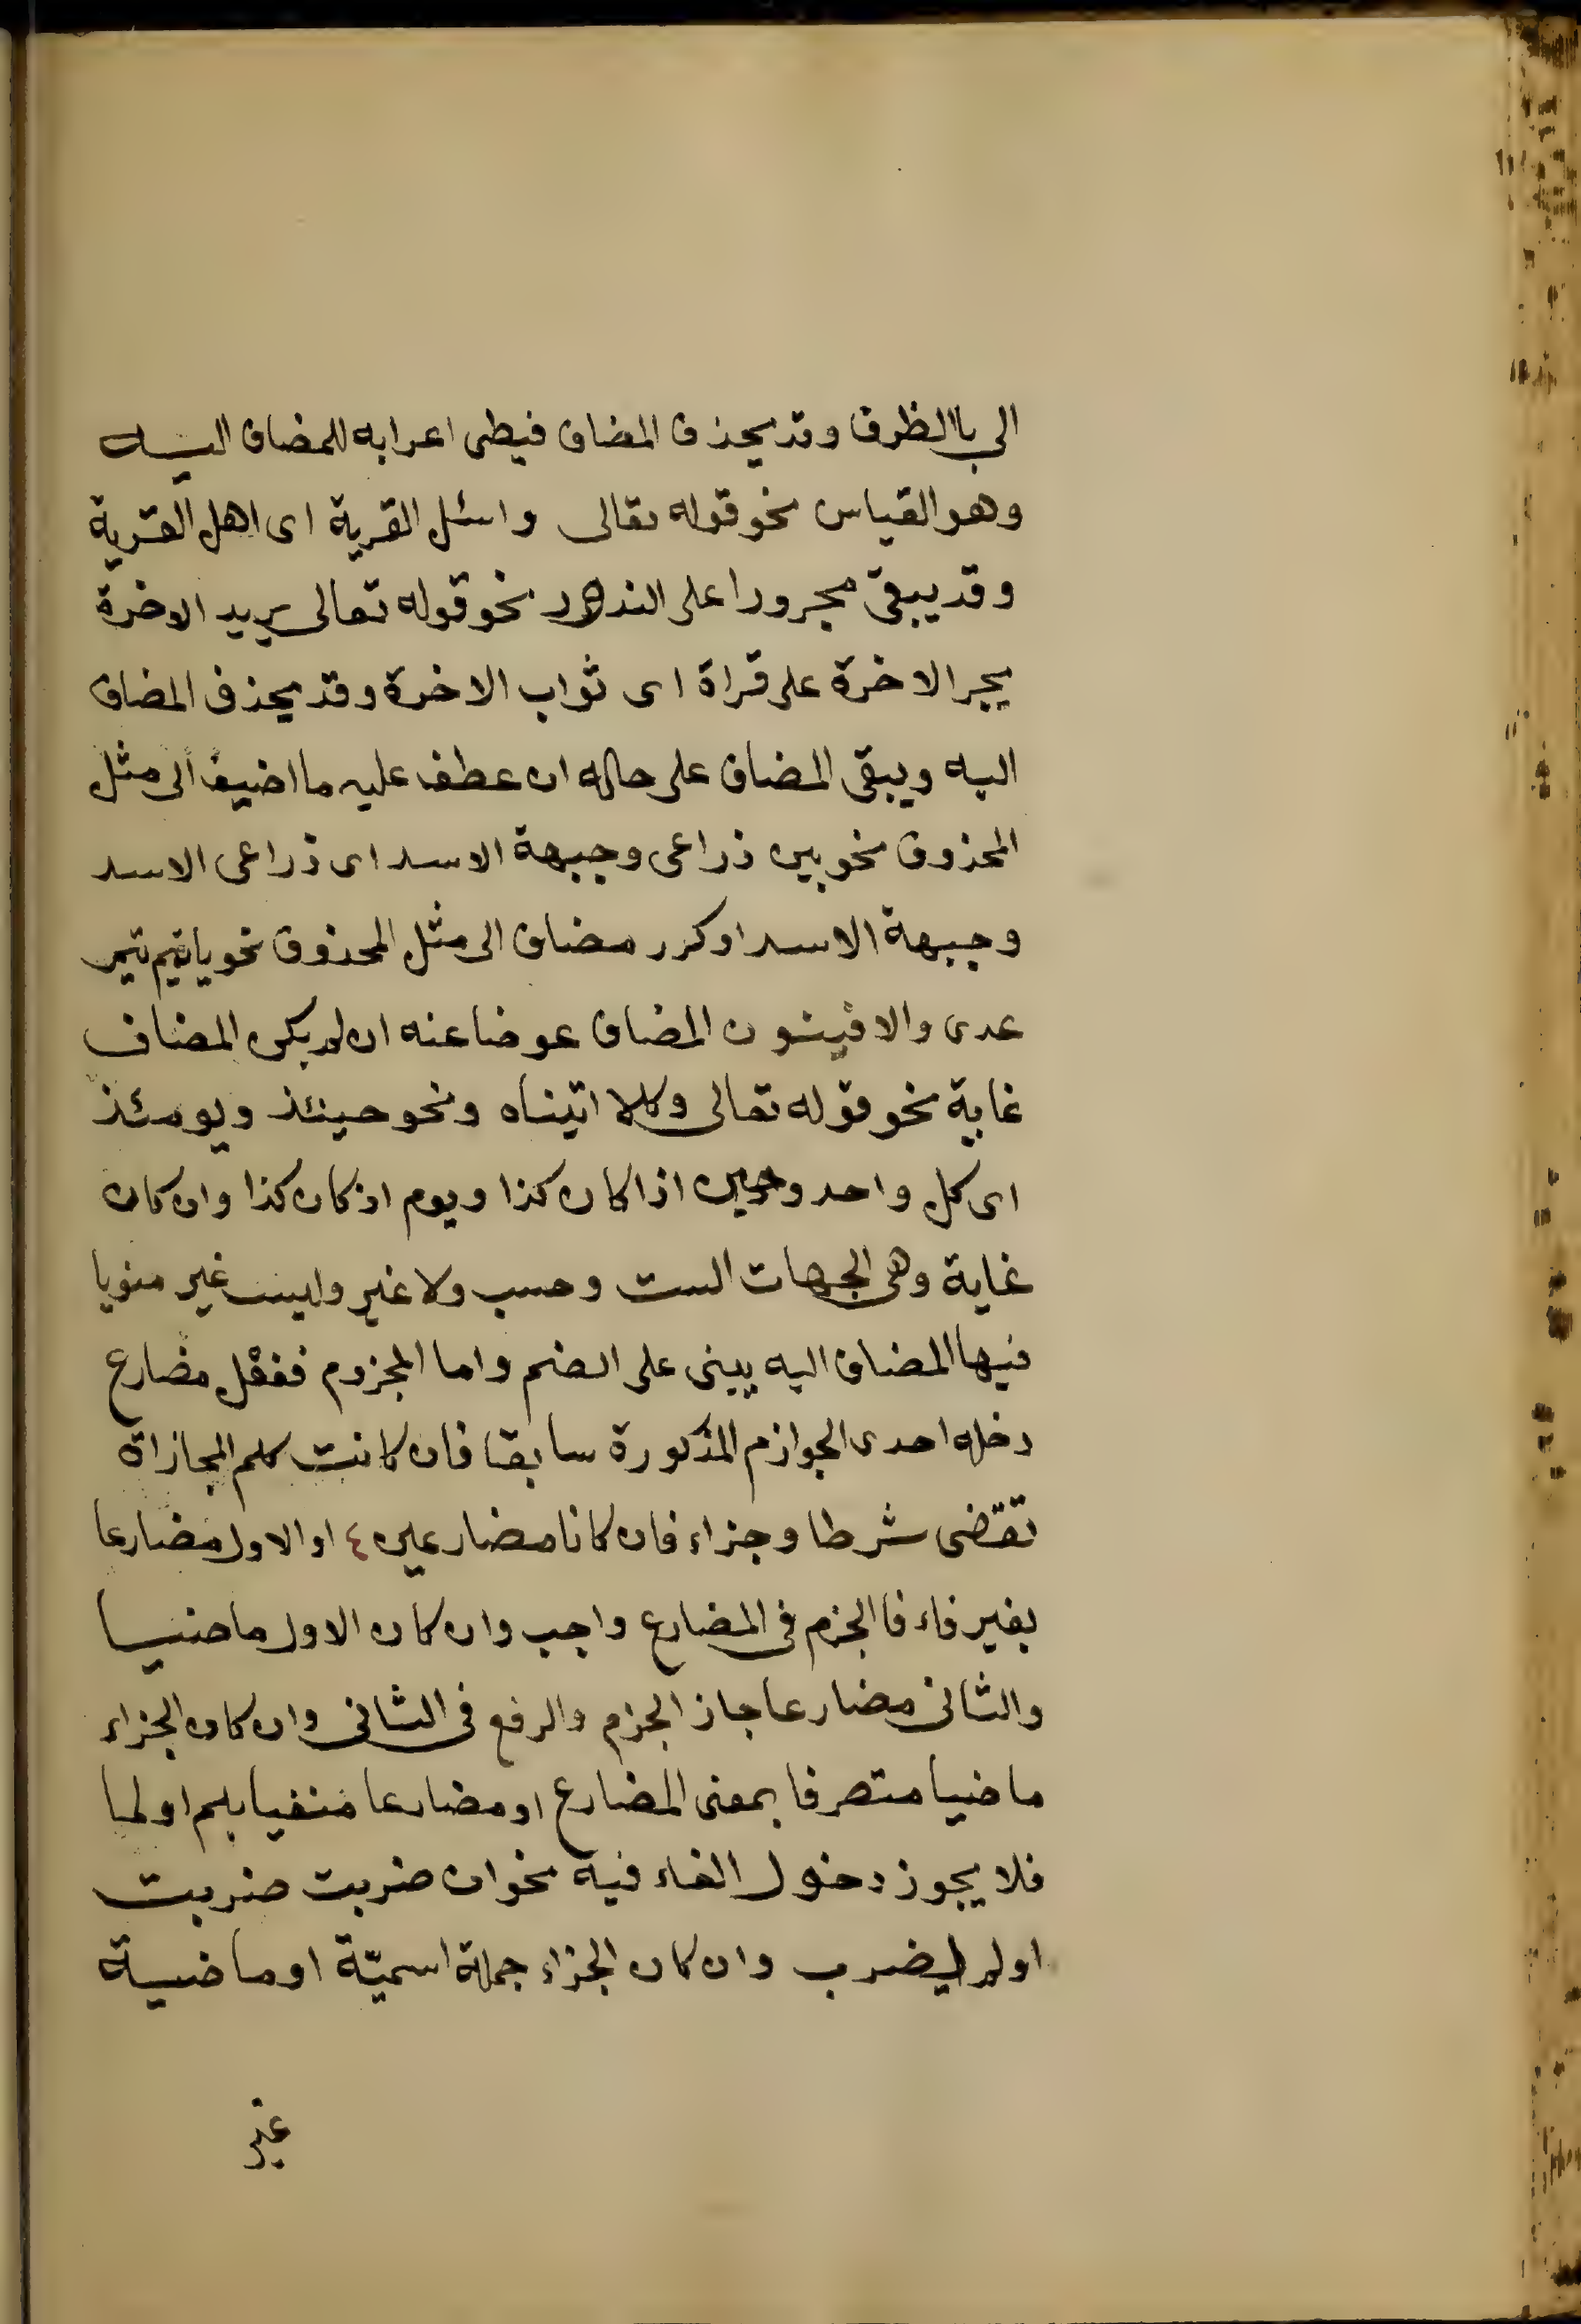 الى باالظرف وقد يحذف المضاف فيطى اعرابه للمضاف اليه
وهو القياس نحو قوله تعالى واسئل القرية اى اهل القرية
وقد يبقى مجرورا على الندور نحو قوله تعالى يريد الاخرة
بجر الاخرة على قراة اى ثواب الاخرة وقد يحذف المضاف
اليه ويبقى المضاف على حاله ان عطف عليه ما اضيف الى مثل
المحذوف نحو بين ذراعى وجبهة الاسد اى ذراعى الاسد
وجبهة الاسد او كرر مضاف الى مثل المحذوف نحو ياتيم تيم
عدى والا فينون المضاف عوضا عنه ان لم يكن المضاف
غاية نحو قوله تعالى وكلا اتيناه ونحو حينئذ ويومئذ
اى كل واحد وحين اذا كان كذا ويوم اذ كان كذا وان كان
غاية وهى الجهات الست وحسب ولا غير وليس غير منويا
فيها المضاف اليه يبنى على الضم واما المجزوم ففعل مضارع
دخله احدى الجوازم المذكورة سابقا فان كانت كلم المجازاة
تقتضى شرطا وجزاء فان كانا مضارعين ٤ او الاول مضارعا
بغير فاء فا الجزم فى المضارع واجب وان كان الاول ماضيا
والثانى مضارعا جاز الجزم والرفع فى الثانى وان كان الجزاء
ماضيا متصرفا بمعنى المضارع او مضارعا منفيا بلم او لما
فلا يجوز دخول الفاء فيه نحو ان ضربت ضربت
اولم ليضرب وان كان الجزاء جملة اسميّة او ماضية
غير